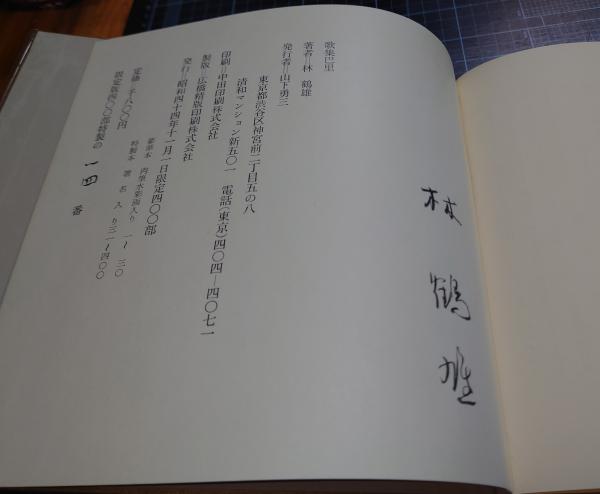 林 鶴雄
歌集巴里
著者=林 鶴雄
発行者=山下勇三
東京都渋谷区神宮前二丁目五の八
清和マンション新五〇一 電話(東京)四〇四―四〇七一
印刷=中田印刷株式会社
製版=広橋精版印刷株式会社
発行=昭和四十四年十一月一日限定四〇〇部
豪華本 肉筆水彩画入り 一〜三〇
特製本 署名入り三一〜四〇〇
定価=千八〇〇円
限定版四〇〇部特製の 番